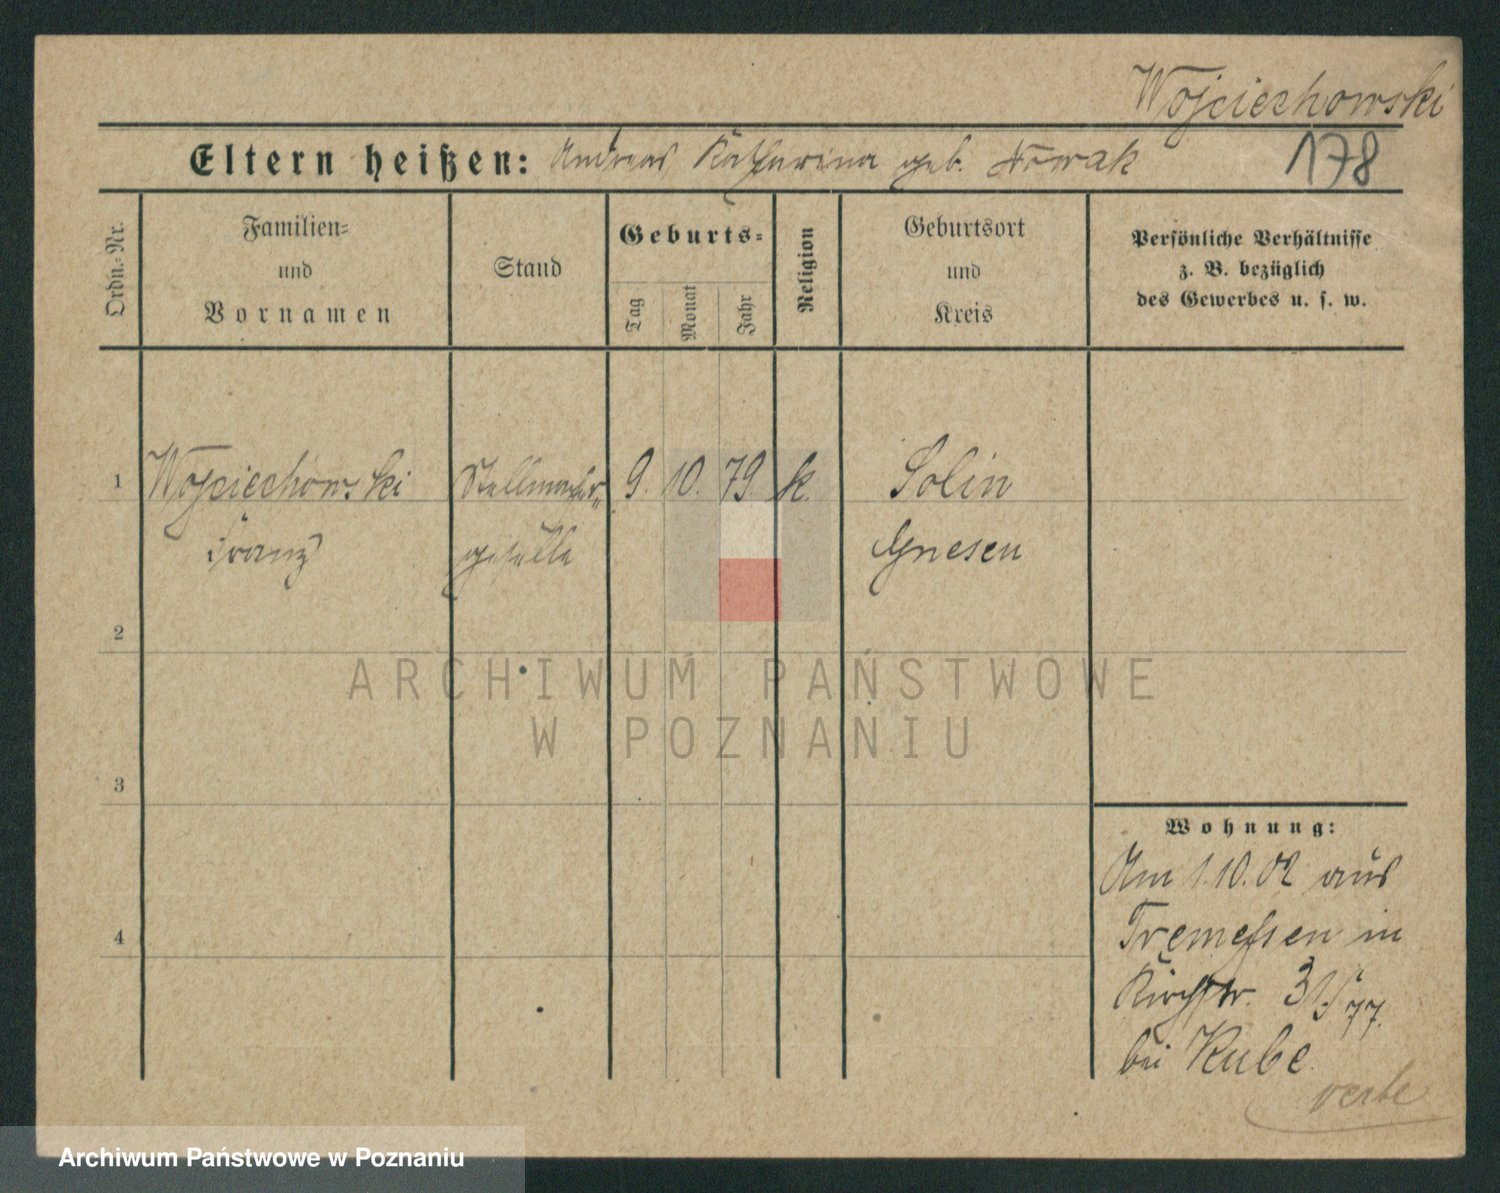 Wojciechowski
178
Eltern heißen: Andreas Katharina geb. Nowak
Ordn.-Nr.
Familien-
und
Vornamen
Stand
Geburts-
Tag
Monat
Jahr
Religion
Geburtsort
und
Kreis
Persönliche Verhältnisse
z. B. bezüglich
des Gewerbes u. s. w.
1 Wojciechowski Stellmacher- 9. 10. 79 k. Solin
Franz geselle Gnesen
2
3
4
ARCHIWUM PAŃSTWOWE
W POZNANIU
Wohnung:
Am 1.10.02 aus
Tremessen in
Kirchstr.
bei Kube
verte
Archiwum Państwowe w Poznaniu